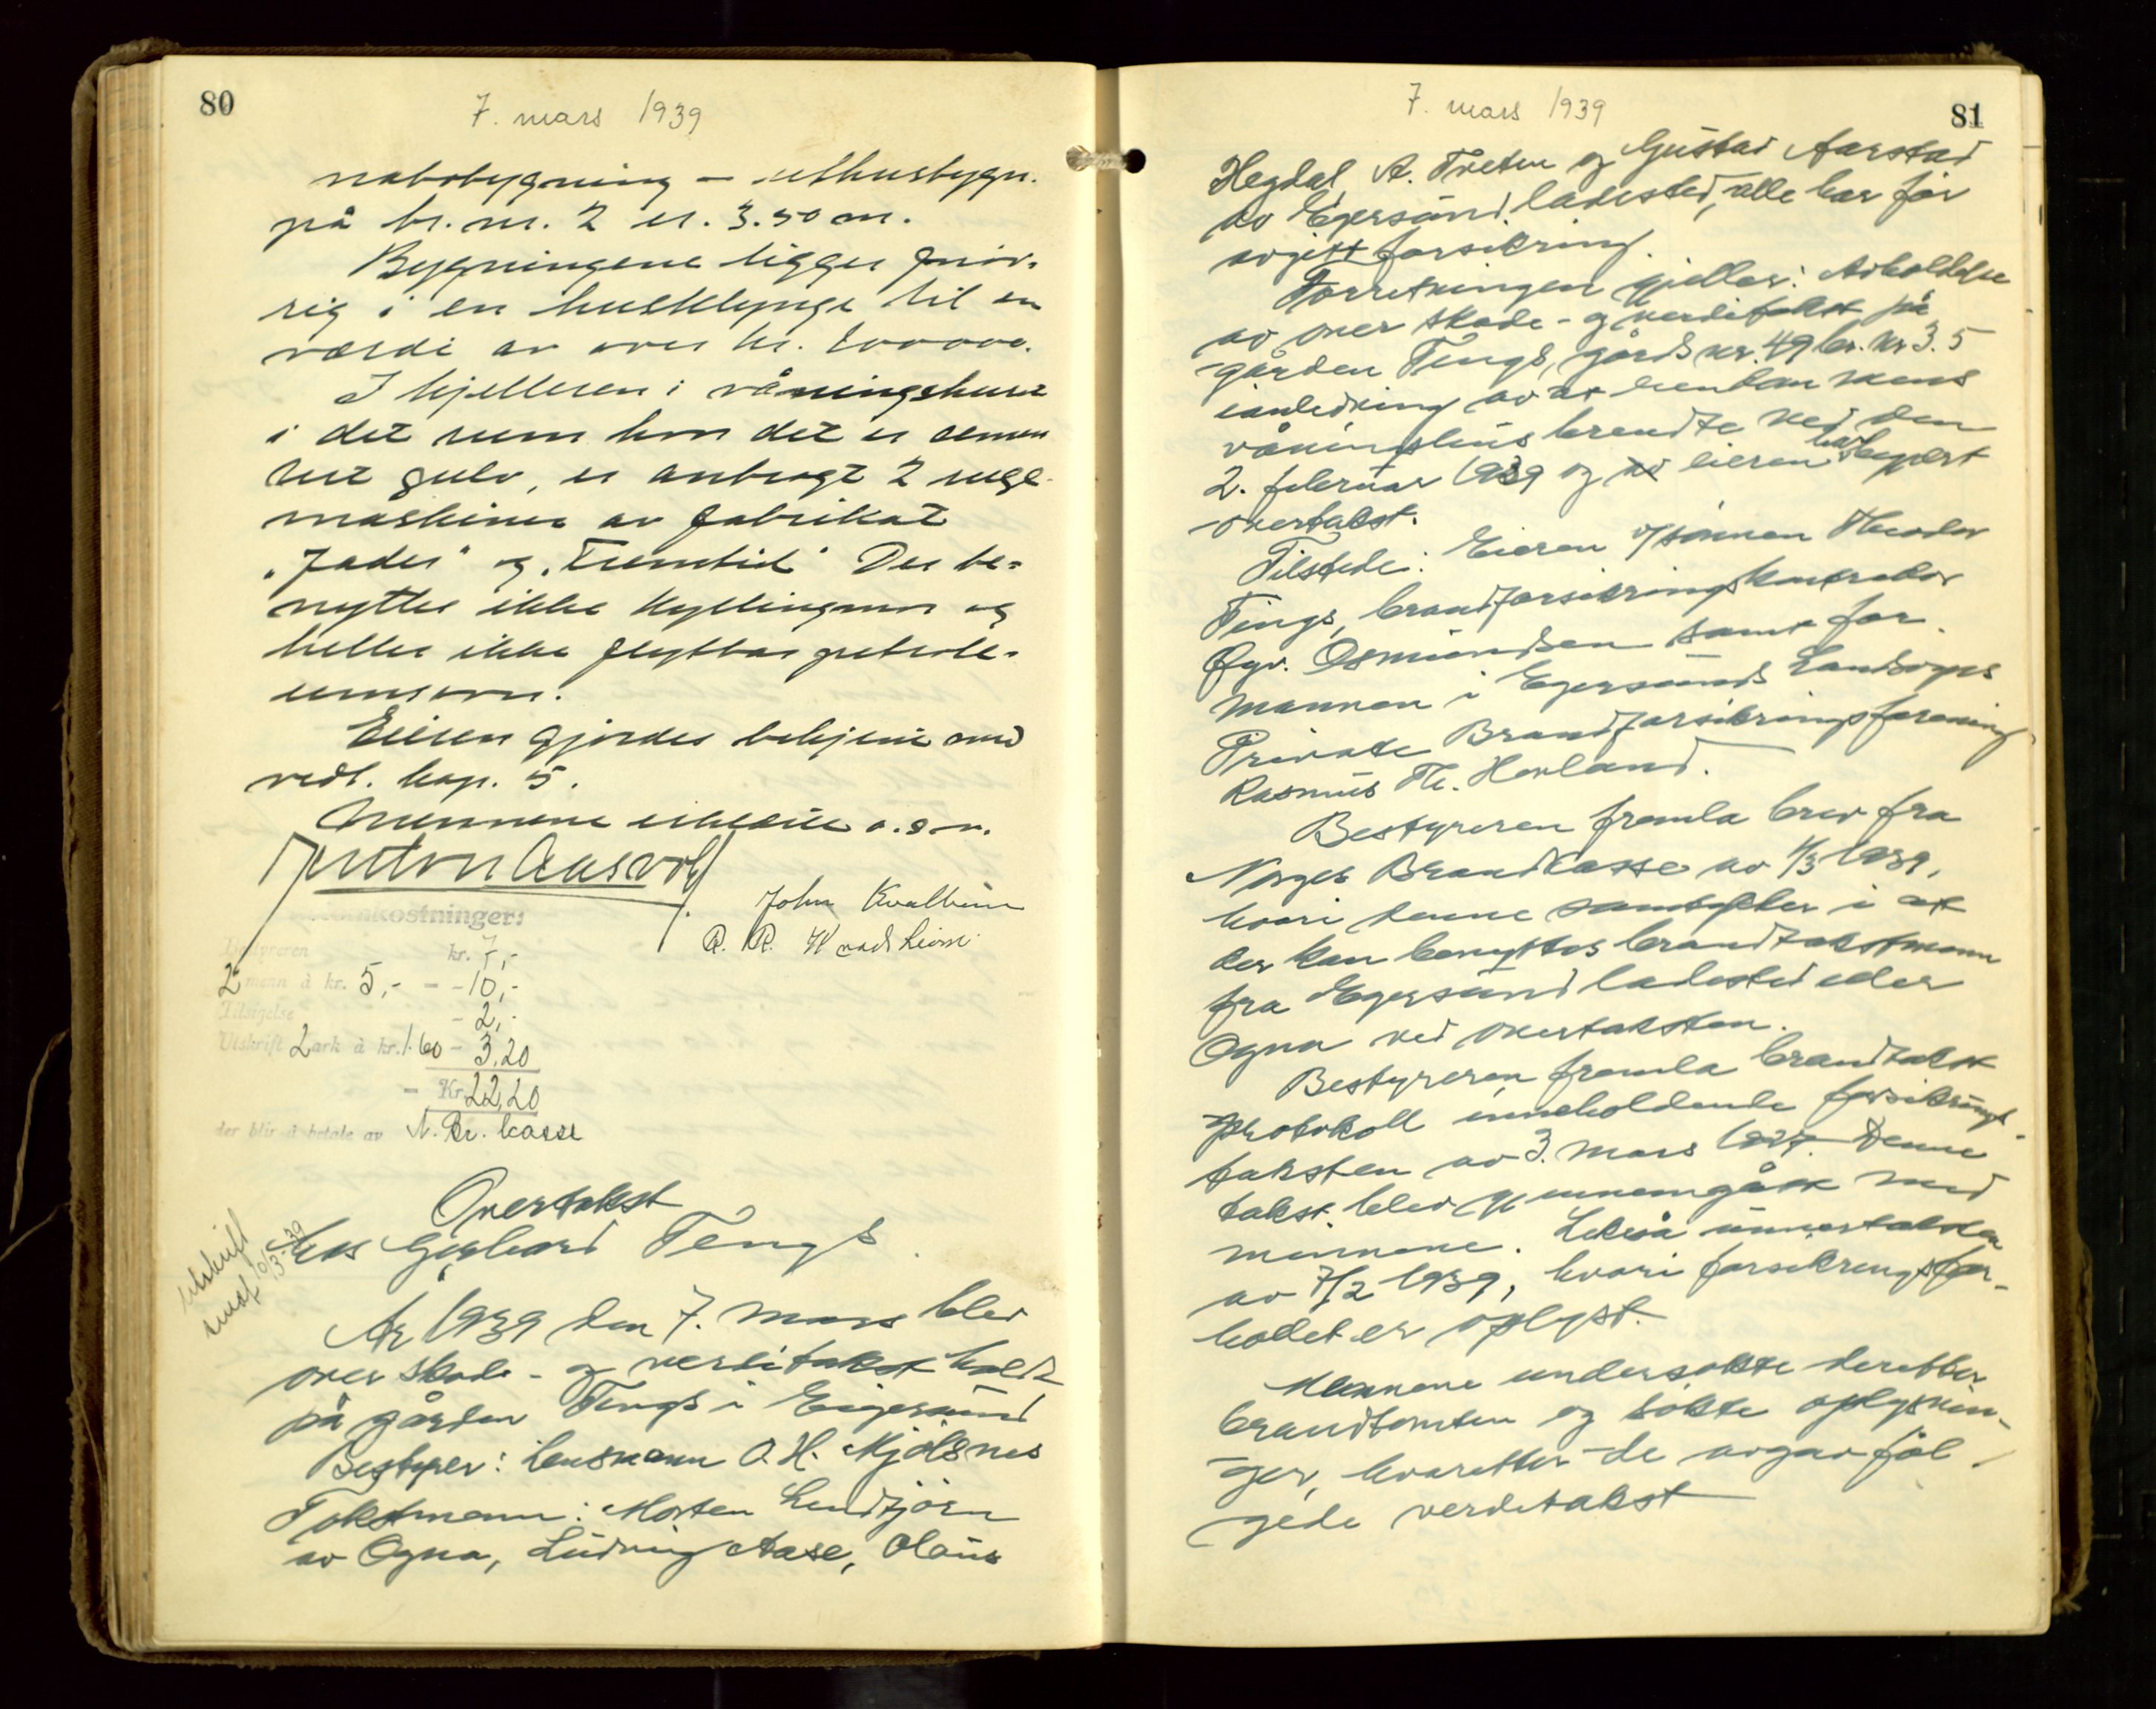 80
7. mars 1939
nabobygning – uthusbygn.
på br. nr. 2 er 3.50 m.
Bygningene ligger forøv-
rig i en husklynge til en
værdi av over kr.
I kjelleren i våningshuset
i det rum hvor det er cemen
tert gulv, er anbragt 2 ruge-
maskiner av fabrikat
"Jader" og "Fremtid" Der be-
nyttes ikke kyllingmor og
heller ikke flyttbar petrole-
umsovn.
Eieren gjordes bekjent med
vedt. kap. 5.
Mennene erklærte o.s.v.
John Kvalheim
R. R.
Omkostninger:
Bestyreren kr. 7,-
2 menn à kr. 5,- - - 10,-
Tilsigelse - 2,-
Utskrift 2 ark à kr. 1.60 - 3.20
- Kr. 22,20
der blir å betale av N. Br. kasse
Overtakst
hos Gerhard Tengs.
Utskrift
sendt 10/3-39
År 1939 den 7. mars blev
over skade- og verditakst holdt
på gården Tengs i Eigersund
Bestyrer: Lensmann O. H. Mjølsnes
Takstmenn: Morten Lindtjørn
av Ogna, Ludvig Aase, Olaus
81
7. mars 1939
Hegdal, A. Treten og Gustav Aarstad
av Egersund ladested, alle har før
avgitt forsikring.
Forretningen gjelder: Avholdelse
av over skade- og verditakst på
gården Tengs, gårds nr. 49 br. nr 3.5
i anledning av at vens
våningshus brendte ned den
2. februar 1939 og at eieren har begjært
overtakst.
Tilstede: Eieren v/sønnen Theodor
Tengs, brandforsikringskontrolør
Øyv. Osmundsen samt for-
mannen i Egersunds Landsogns
Private Brandforsikringsforening
Rasmus Th. Hovland.
Bestyreren fremla brev fra
Norges Brandkasse av 4/3 1939,
hvori denne samtykker i at
der kan benyttes brandtakstmenn
fra Egersund ladested eller
Ogna ved overtaksten.
Bestyreren fremla brandtakst
protokoll inneholdende forsikrings-
taksten av 3. mars 1927. Denne
takst blev gjennemgått med
mennene. Likeså undertaksten
av 7/2 1939, hvori forsikringsfor-
holdet er oplyst.
Mennene undersøkte deretter
brandtomten og søkte oplysnin-
ger, hvoretter de avgav føl-
gede verditakst